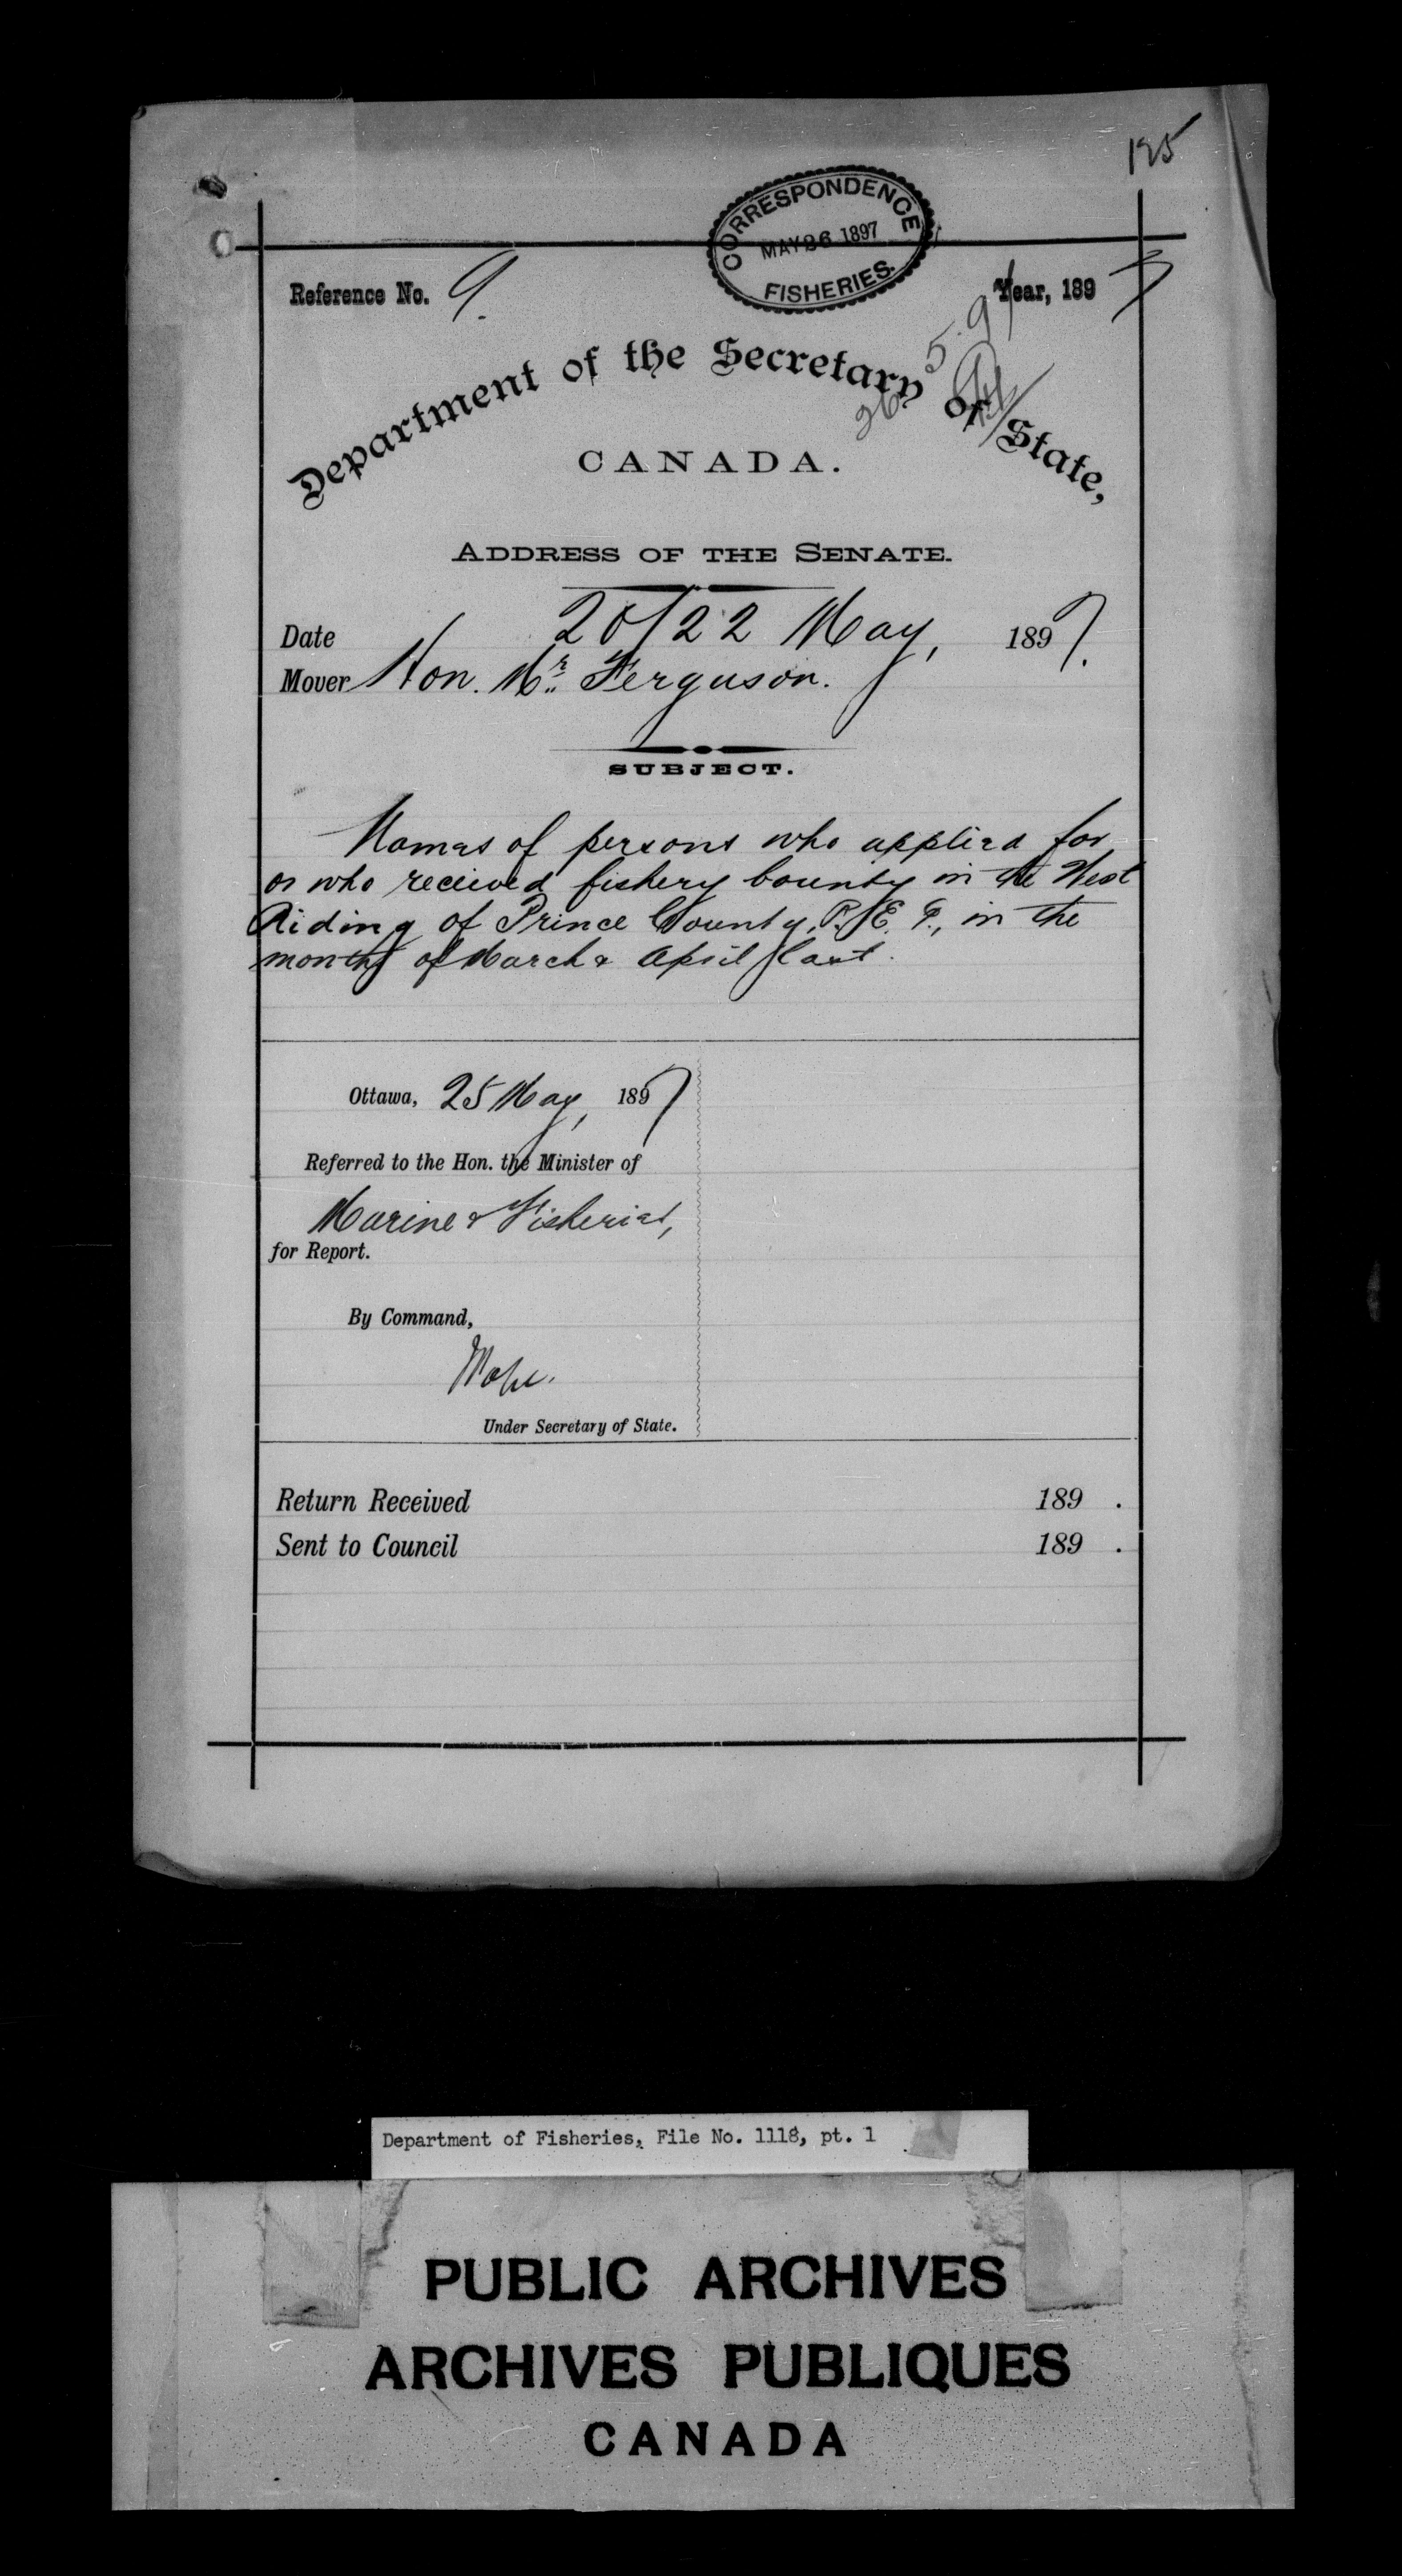 125
CORRESPONDENCE
MAY 26 1897
FISHERIES.
Reference No. 9.
Year, 1897
26 5. 97
Department of the Secretary of State,
CANADA.
ADDRESS OF THE SENATE.
Date 20/22 May, 1897.
Mover Hon. Mr. Ferguson.
SUBJECT.
Names of persons who applied for
or who received fishery bounty in the West
Riding of Prince County, P. E. I., in the
months of March & April last.
Ottawa, 25 May, 1897
Referred to the Hon. the Minister of
Marine & Fisheries,
for Report.
By Command,
Under Secretary of State.
Return Received 189 .
Sent to Council 189 .
Department of Fisheries, File No. 1118, pt. 1
PUBLIC ARCHIVES
ARCHIVES PUBLIQUES
CANADA